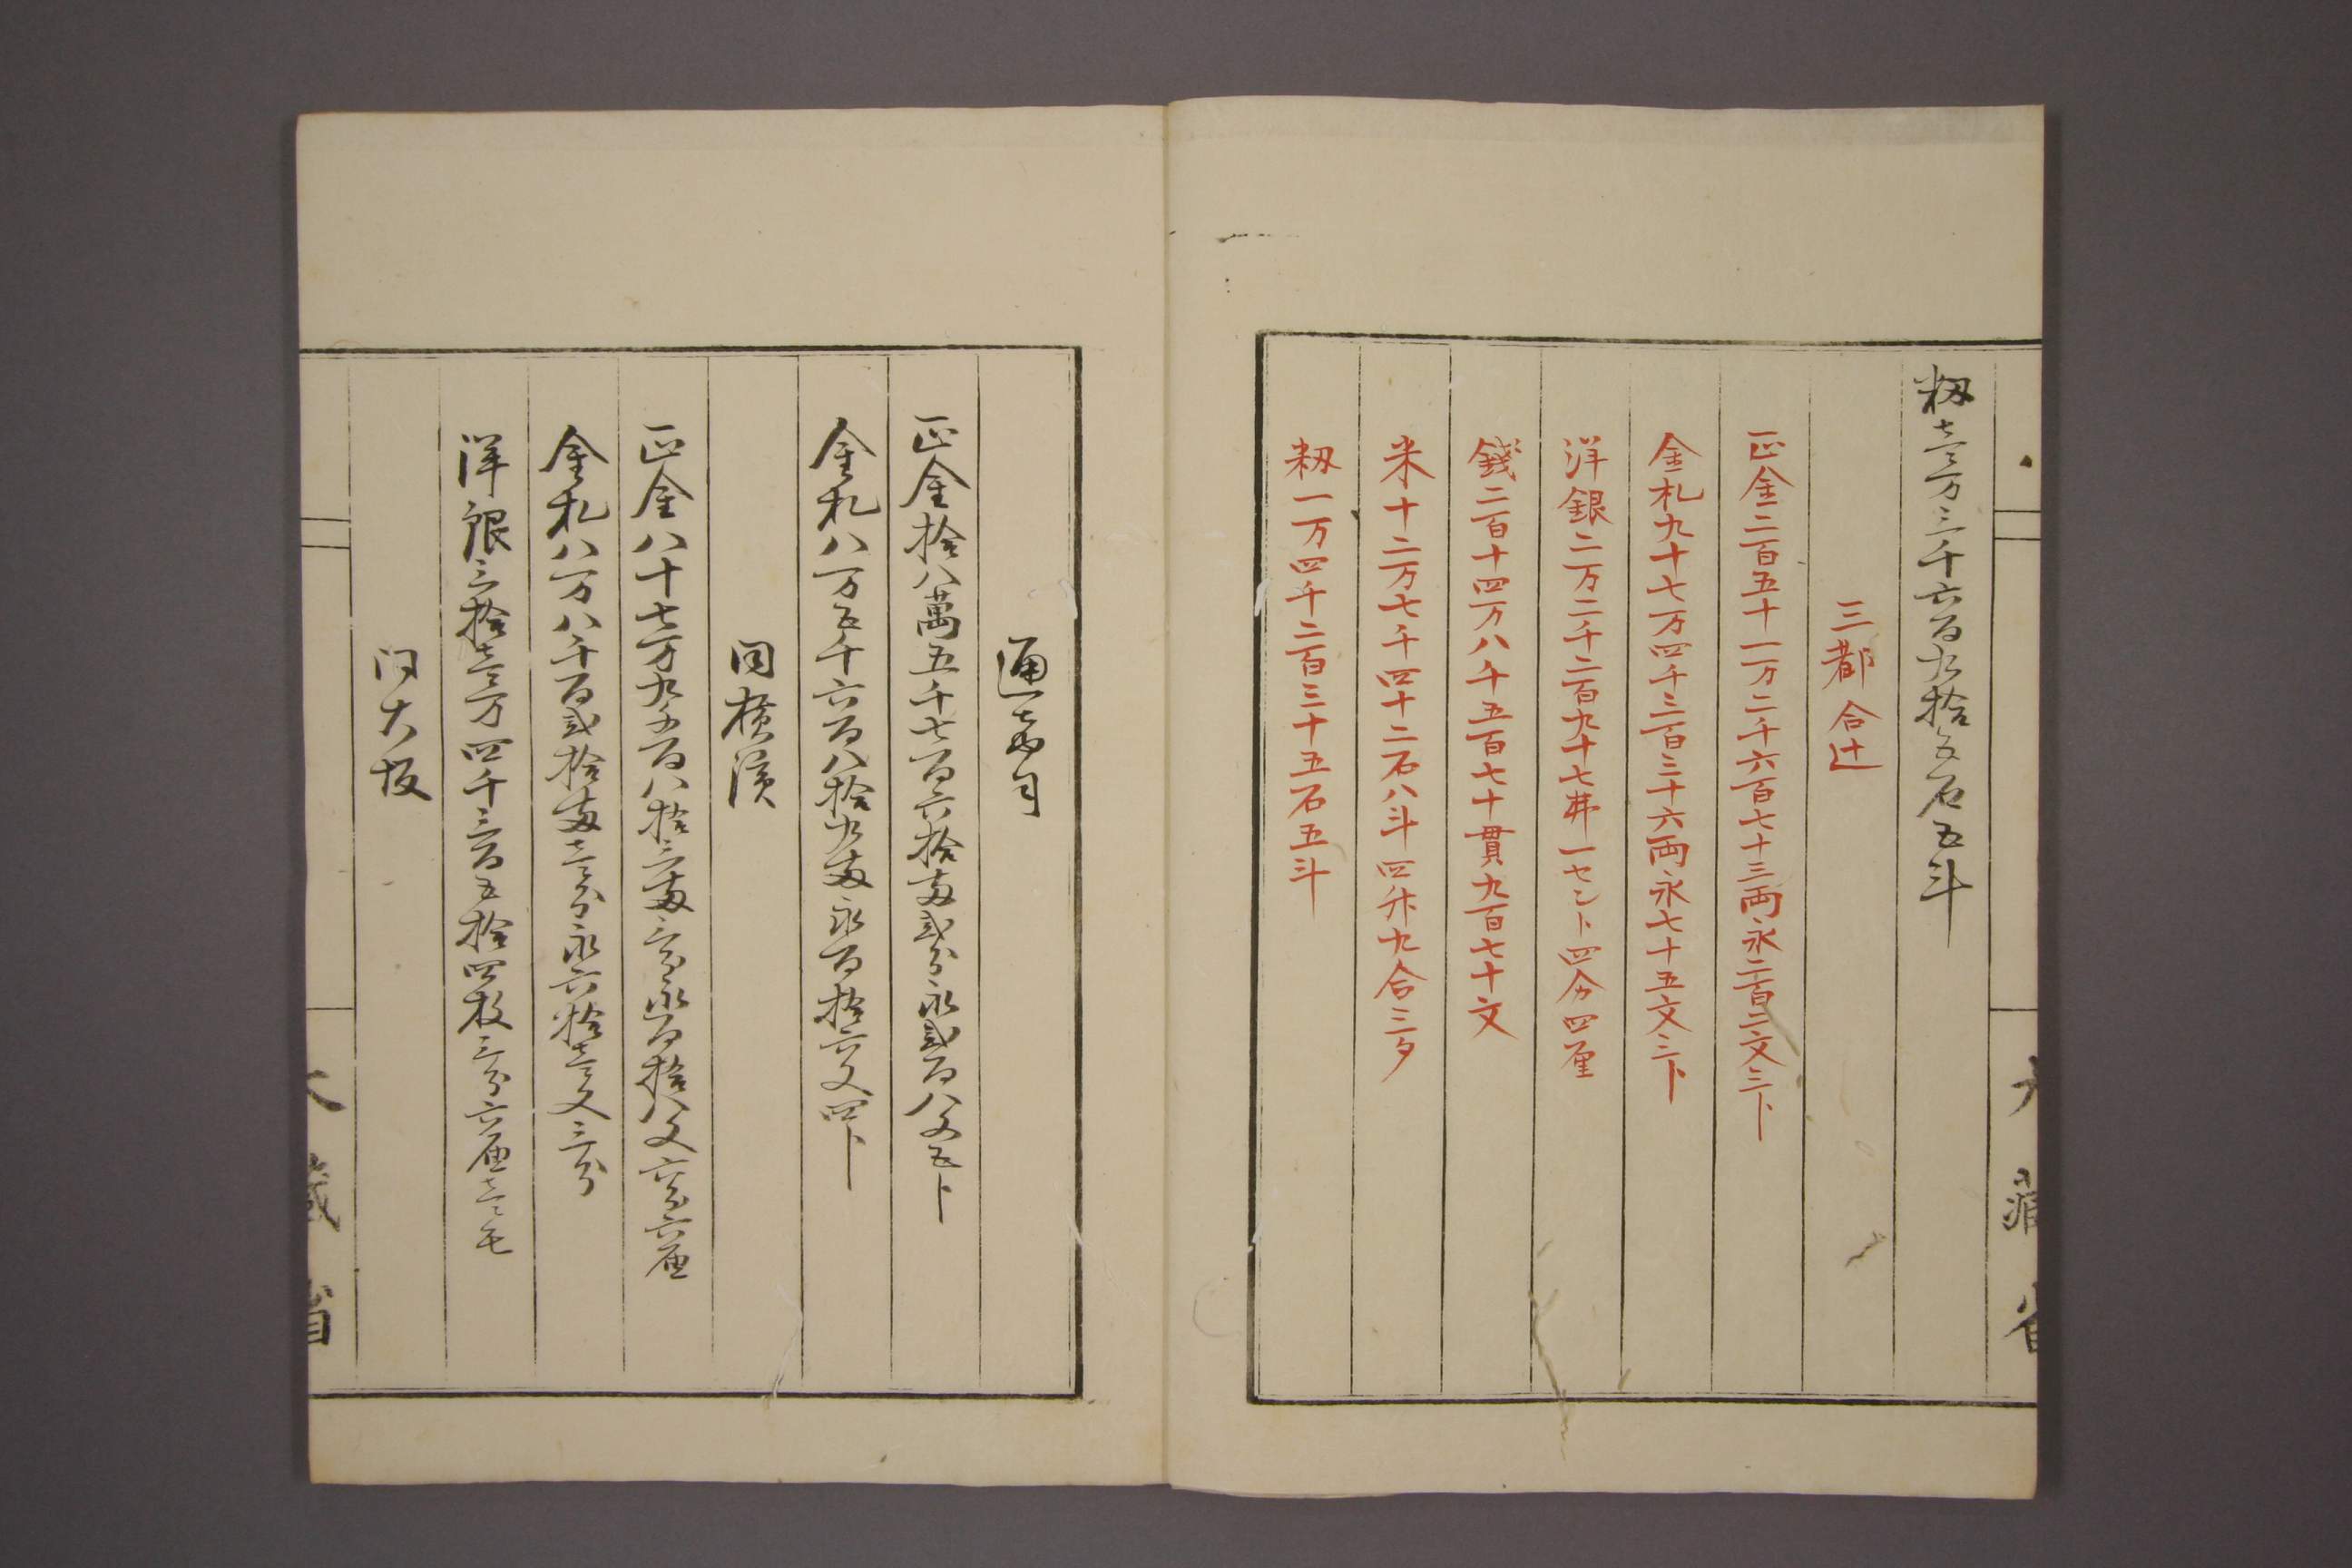 籾壱万三千六百九拾五石五斗
三都合辻
正金二百五十一万二千六百七十三両永二百二文三卜
金札九十七万四千三百三十六両永七十五文三卜
洋銀二万二千二百九十七弗一セント四分四厘
錢二百十四万八千五百七十貫九百七十文
米十二万七千四十二石八斗四升九合三夕
籾一万四千二百三十五石五斗
大藏省
通商司
正金拾八萬五千七百六拾両弐分永弐百八文五卜
金札八万五千六百八拾九両永百拾六文四卜
同横濱
正金八十七万九千五百八拾三両三分永百拾八文六分六厘
金札八万八千百弐拾両壱分永六拾壱文三分
洋銀三拾壱万四千三百五拾四枚三分六厘壱毛
同大坂
大藏省